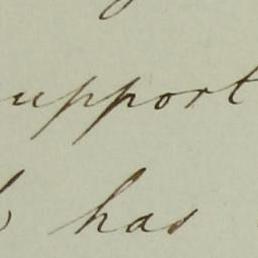 upport
has